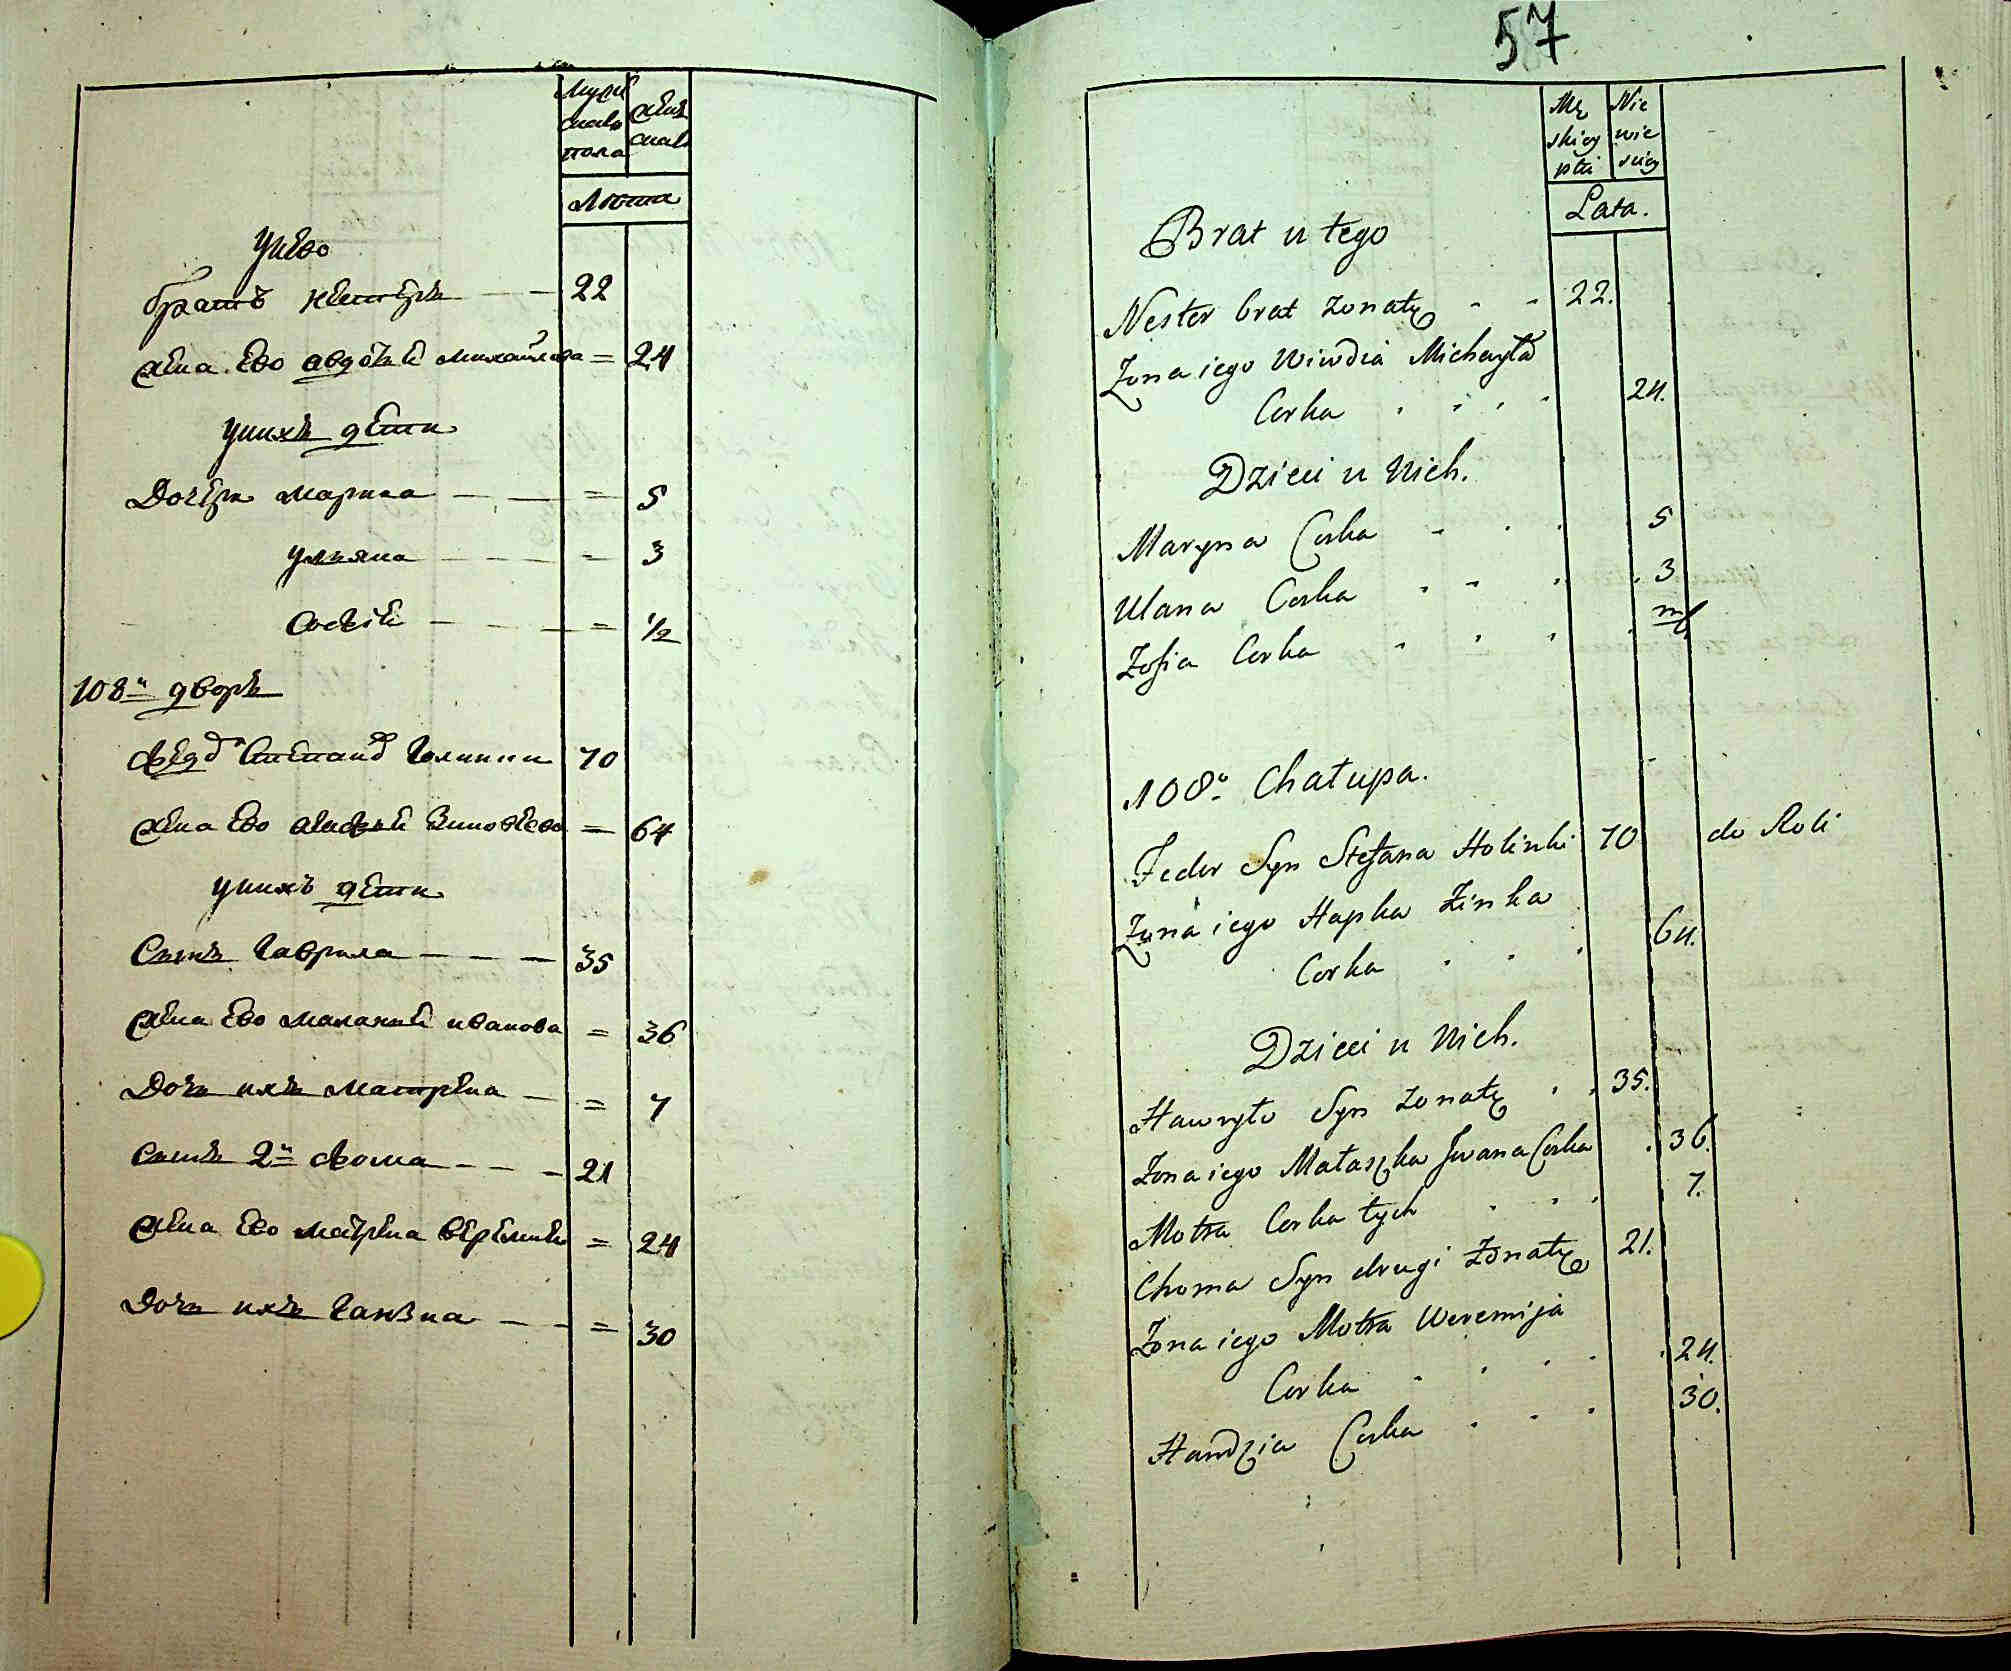 Муж
скаго
пола
Жен
скаго
Лѣта
У него
братъ Нестеръ 22
Жена Ево Авдотья Михайлова = 24
у нихъ дети
Дочери Марина = 5
Ульяна = 3
Софья = 1/2
108й дворъ
Федоръ Степанов Голинки 70
Жена Ево Агафья Зиновьева = 64
у нихъ дети
Сынъ Гаврила 35
Жена Ево Маланья Иванова = 36
Дочь ихъ Матрена = 7
Сынъ 2й Фома 21
Жена Ево Матрена = 24
Дочь ихъ = 30
57
Mę
skiey
płci
Nie
wie
sciey
Lata.
Brat u tego
Nester brat żonaty 22.
Żona iego Wiwdia Michayła
Corka 24.
Dzieci u Nich.
Maryna Corka 5
Ulana Corka 3
Zofia Corka
108a Chałupa.
Fedor Syn Stefana Holinki 70 do Roli
Żona iego Hapka Zinka
Corka 64.
Dzieci u Nich.
Hawryło Syn żonaty 35.
Żona iego Małaszka Jwana Corka 36.
Motra Corka tych 7.
Choma Syn drugi żonaty 21.
Żona iego Motra Weremija
Corka 24.
Handzia Corka 30.